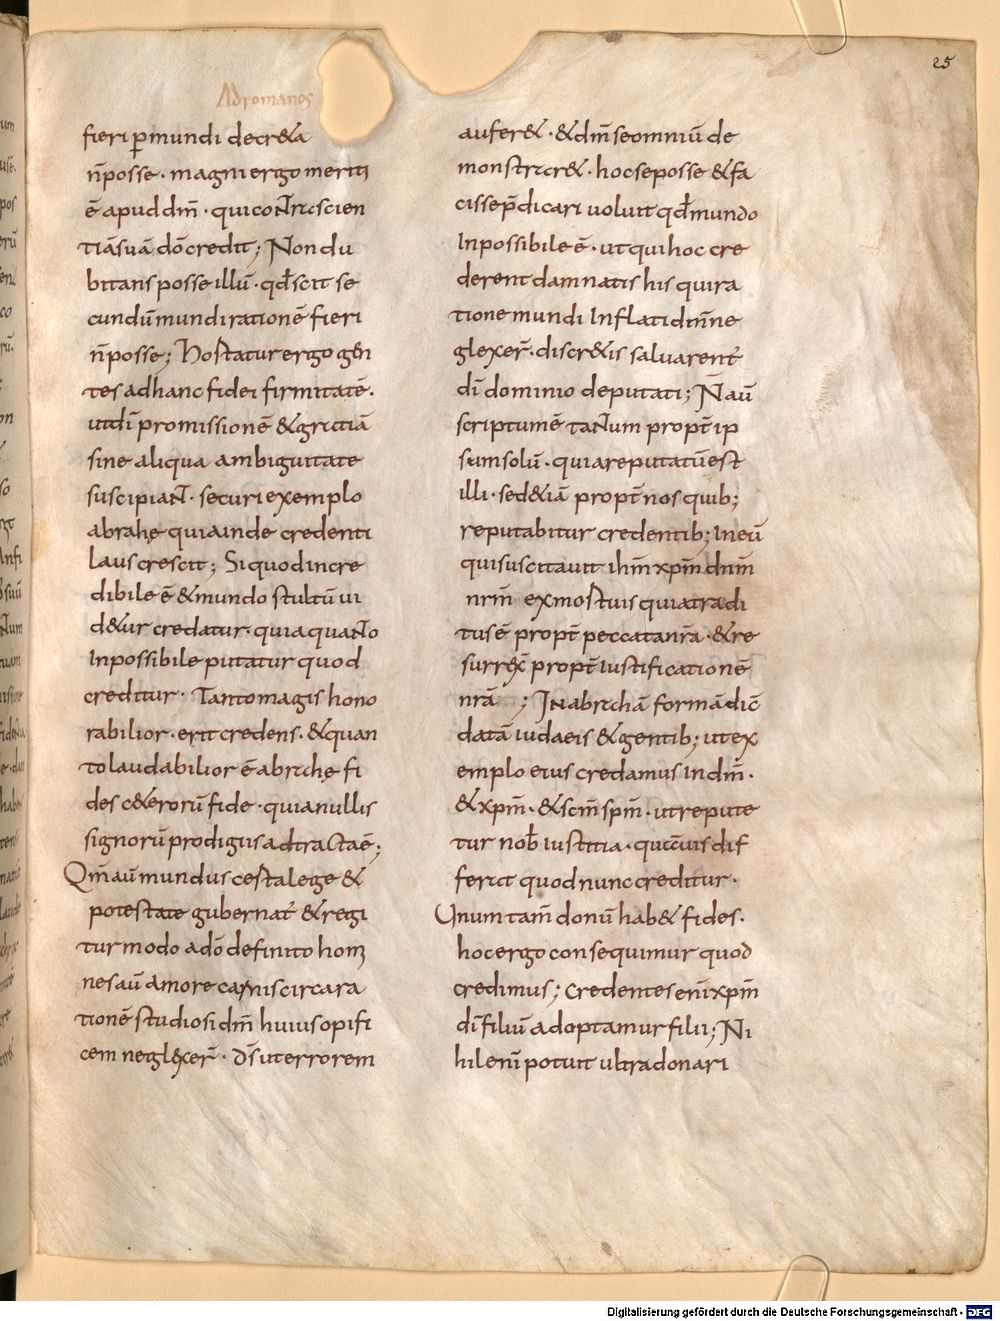 25
Adromanos
fieri ꝑmundi decr&a
n̄posse · magni ergo meriti
ē apud dm̄ · qui contrascien
tiāsuā dō credit; Non du
bitans posse illū · qđ scit se
cundū mundi rationē fieri
n̄posse; Hostatur ergo gen
tes ad hanc fidei firmitatē ·
ut dī promissionē & gratiā
sine aliqua ambiguitate
suscipiant · securi exemplo
abrahę quia inde credenti
laus crescit; Si quod incre
dibile ē & mundo stultū ui
d&ur credatur · quia quanto
Inpossibile putatur quod
creditur · Tanto magis hono
rabilior · erit credens · & quan
to laudabilior ē abrahę fi
des c&erorū fide · quia nullis
signorū prodigiis adtracta ē;
Qm̄ aū mundus cęsta lege &
potestate gubernat̄ & regi
tur modo a dō definito homi
nes aū amore carnis circa ra
tionē studiosi dm̄ huius opifi
cem neglexer̄ · ds̄ ut errorem
aufer& · & dm̄ se omniū de
monstrar& · hoc se posse & fa
cisse p̄dicari uoluit qđ mundo
Inpossibile ē · ut qui hoc cre
derent damnatis his qui ra
tione mundi Inflati dm̄ ne
glexer̄ · discr&is saluarent̄
dī dominio deputati; N aū
scriptum ē tantum propt̄ ip
sum solū · quia reputatū est
illi · sed &iā propt̄ nos quib;
reputabitur credentib; In eū
qui suscitauit ihm̄ xpm̄ dnm̄
nrm̄ ex mostuis quia tradi
tus ē propt̄ peccata nr̄a · & re
surrex̄ propt̄ iustificationē
nrā ; In abrahā formā dic̄
datā iudaeis & gentib; ut ex
emplo eius credamus In dm̄ ·
& xpm̄ · & scm̄ spm̄ · ut repute
tur nob̄ iustitia · quicuis dif
ferat quod nunc creditur ·
Unum tam̄ donū hab& fides ·
hoc ergo consequimur quod
credimus; Credentes enī xpm̄
dī filiū adoptamur filii; Ni
hil enī potuit ultra donari
Digitalisierung gefördert durch die Deutsche Forschungsgemeinschaft - DFG